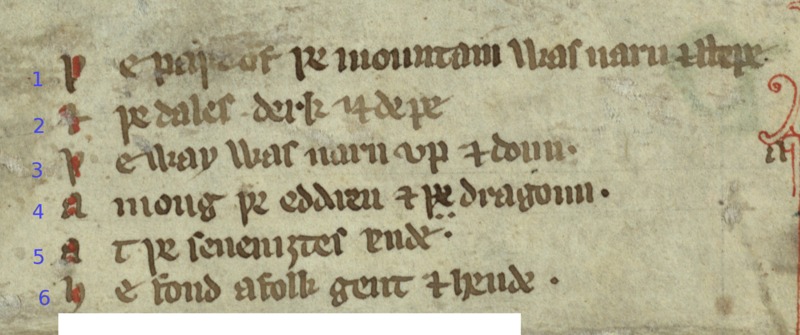 1 þ e of þe mountain was naru & stepe
2 & þe dales derk & depe
3 þ e way was naru vp & doun·
4 a mong þe eddren & þe dragoun·
5 a t þe seueniȝtes ende
6 h e fond a folk gent & hende ·